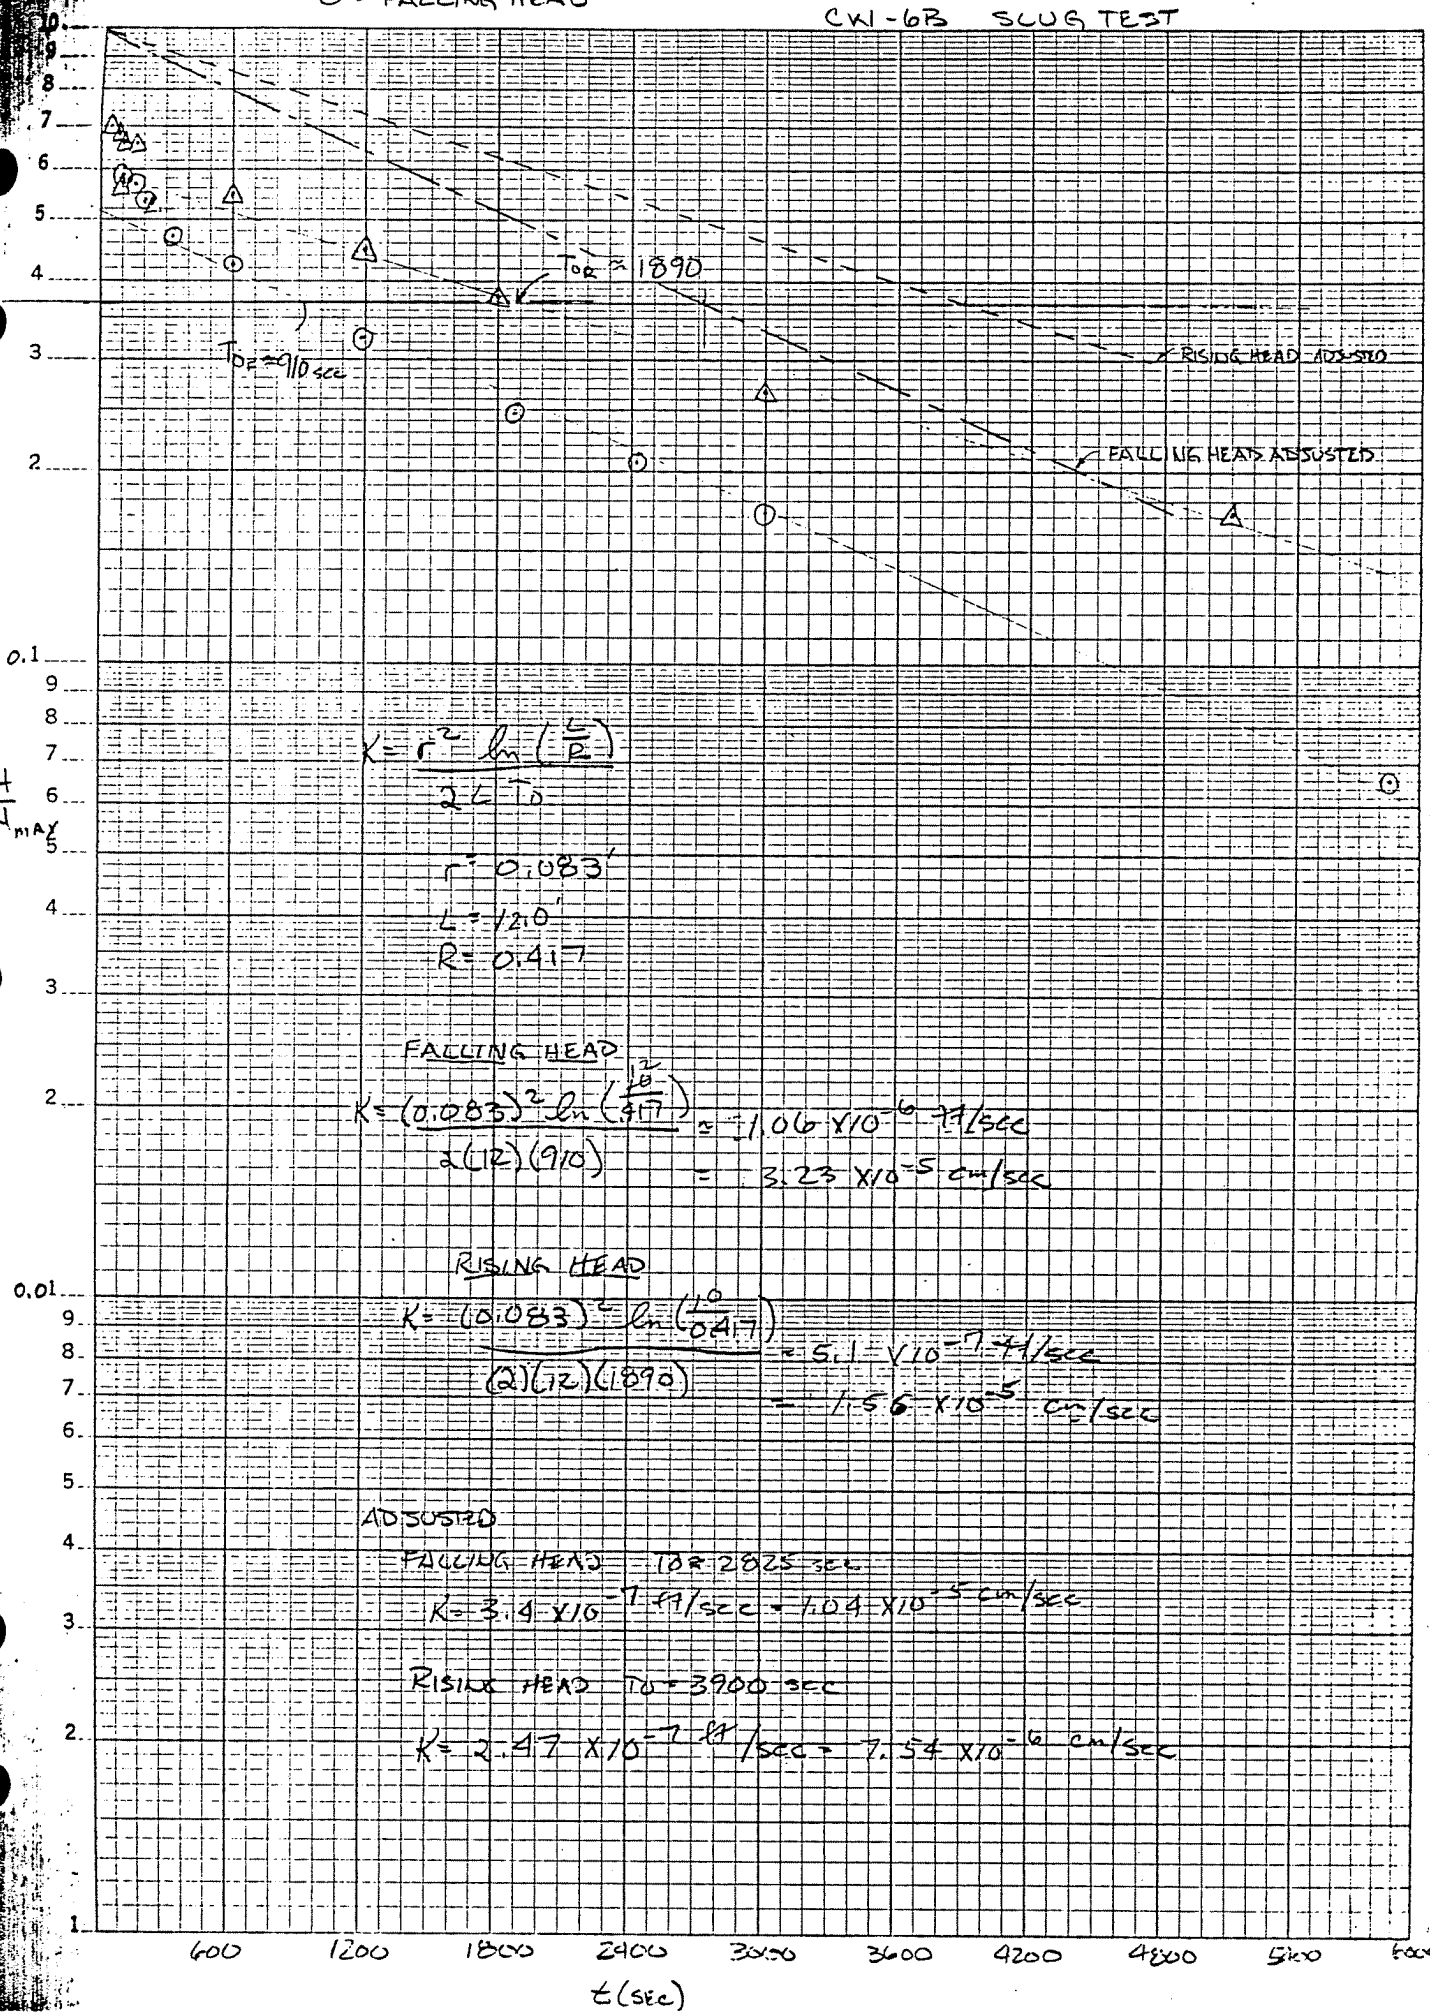 O - FALLING HEAD
CW-6B SLUG TEST
10.
9
8
7
6
5
4
3
2
0.1
9
8
7
6
5
4
3
2
0.01
9
8
7
6
5
4
3
2
1
H/Hmax
T0R ≈ 1890
T0F ≈ 910 sec
RISING HEAD ADJUSTED
FALLING HEAD ADJUSTED
K = r² ln (L/R) / 2 L T0
r = 0.083'
L = 12.0'
R = 0.417
FALLING HEAD
K = (0.083)² ln (12/.417) / 2(12)(910) = 1.06 X10⁻⁶ ft/sec
= 3.23 X10⁻⁵ cm/sec
RISING HEAD
K = (0.083)² ln (10/0.417) / (2)(12)(1890) = 5.1 X10⁻⁷ ft/sec
= 1.56 X10⁻⁵ cm/sec
ADJUSTED
FALLING HEAD T0 = 2825 sec
K = 3.4 X10⁻⁷ ft/sec = 1.04 X10⁻⁵ cm/sec
RISING HEAD T0 = 3900 sec
K = 2.47 X10⁻⁷ ft/sec = 7.54 X10⁻⁶ cm/sec
600 1200 1800 2400 3000 3600 4200 4800 5400 6000
t (SEC)